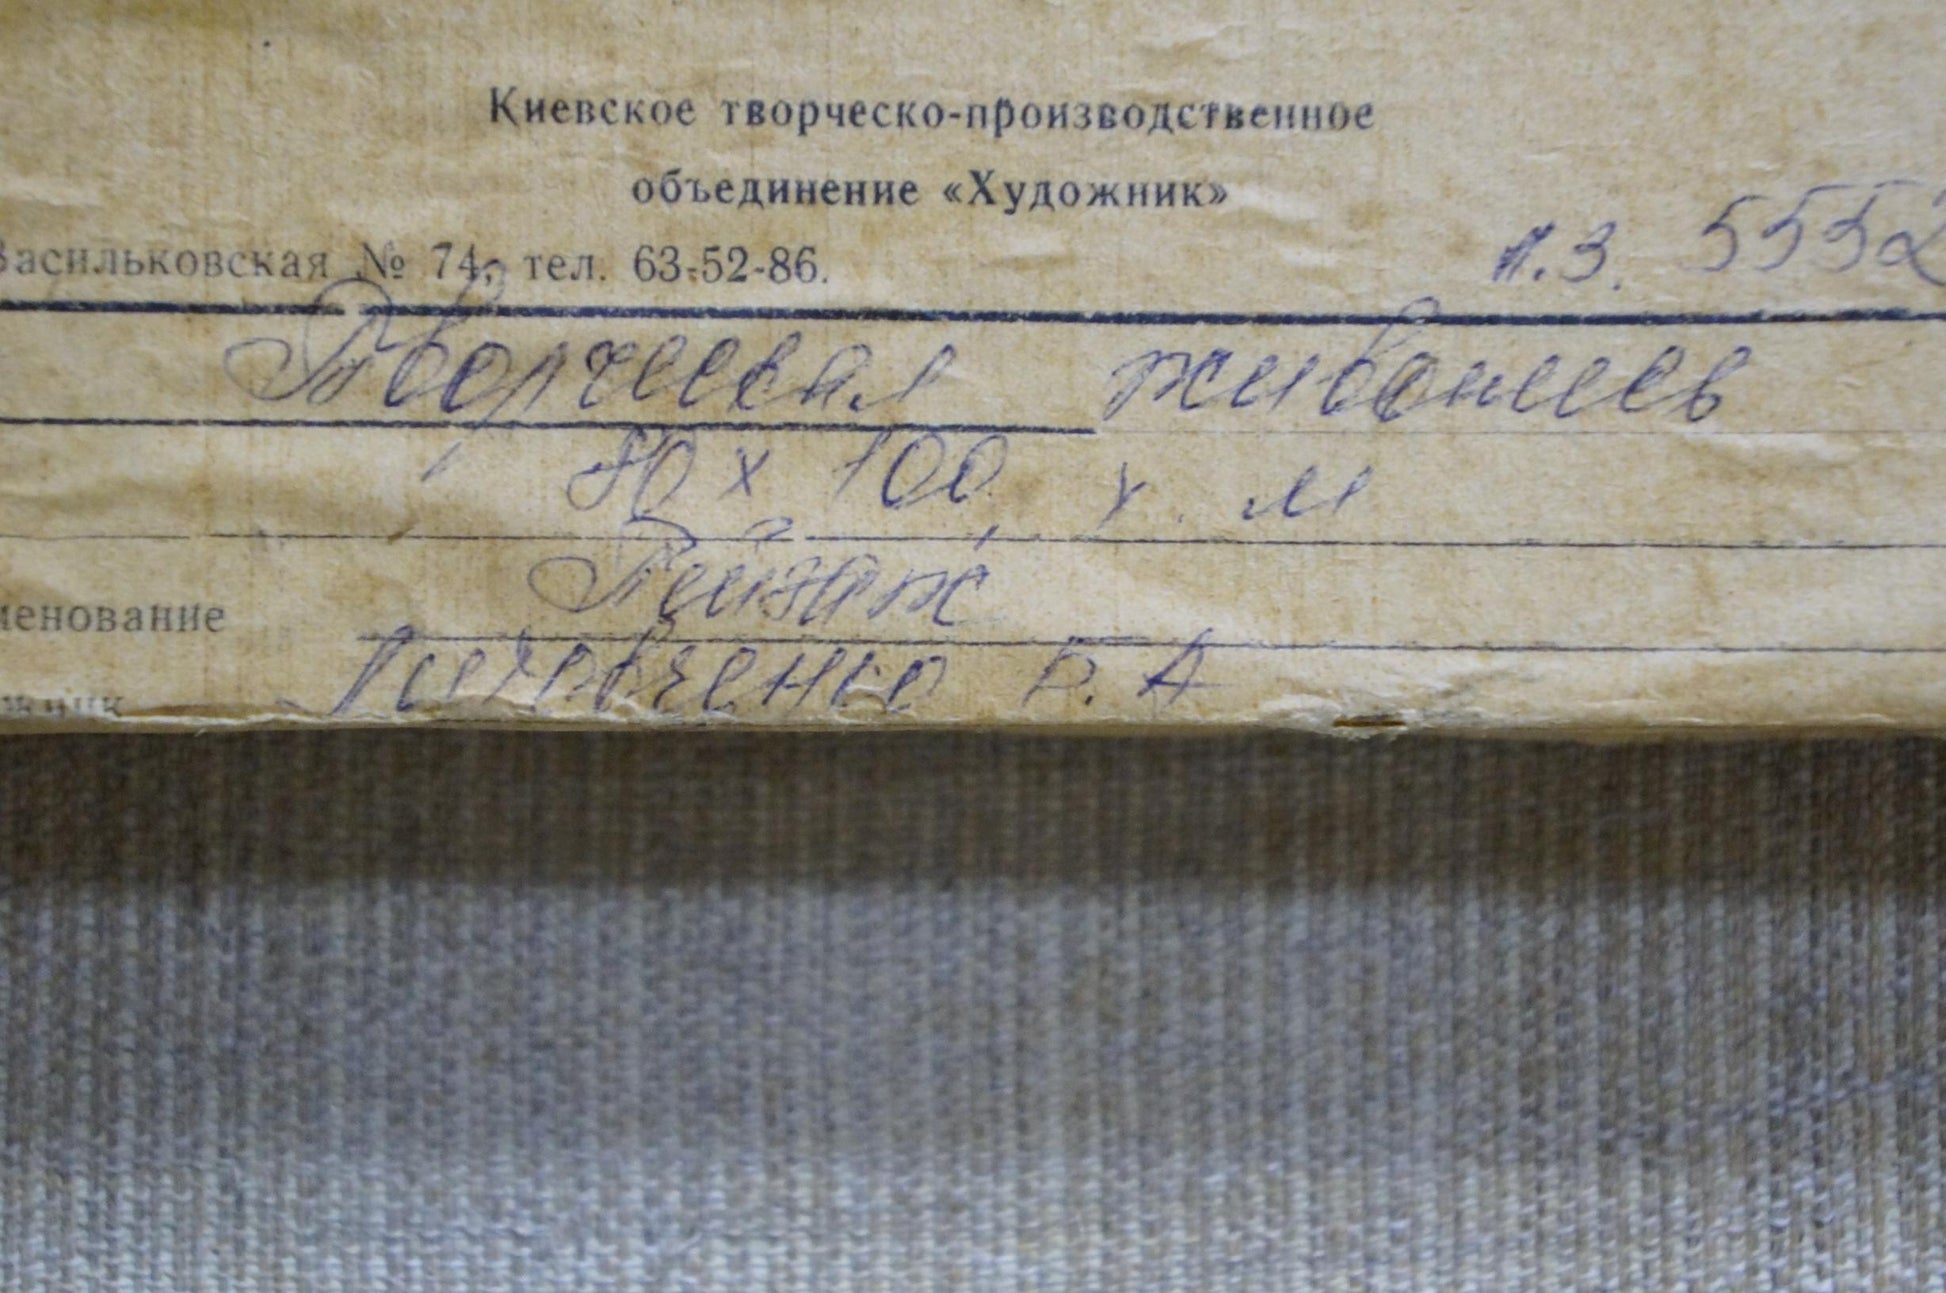 Киевское творческо-производственное
объединение «Художник»
Васильковская № 74, тел. 63-52-86.
л.з. 5552
Творческая живопись
80 х 100 х. м
Пейзаж
менование
Б. А